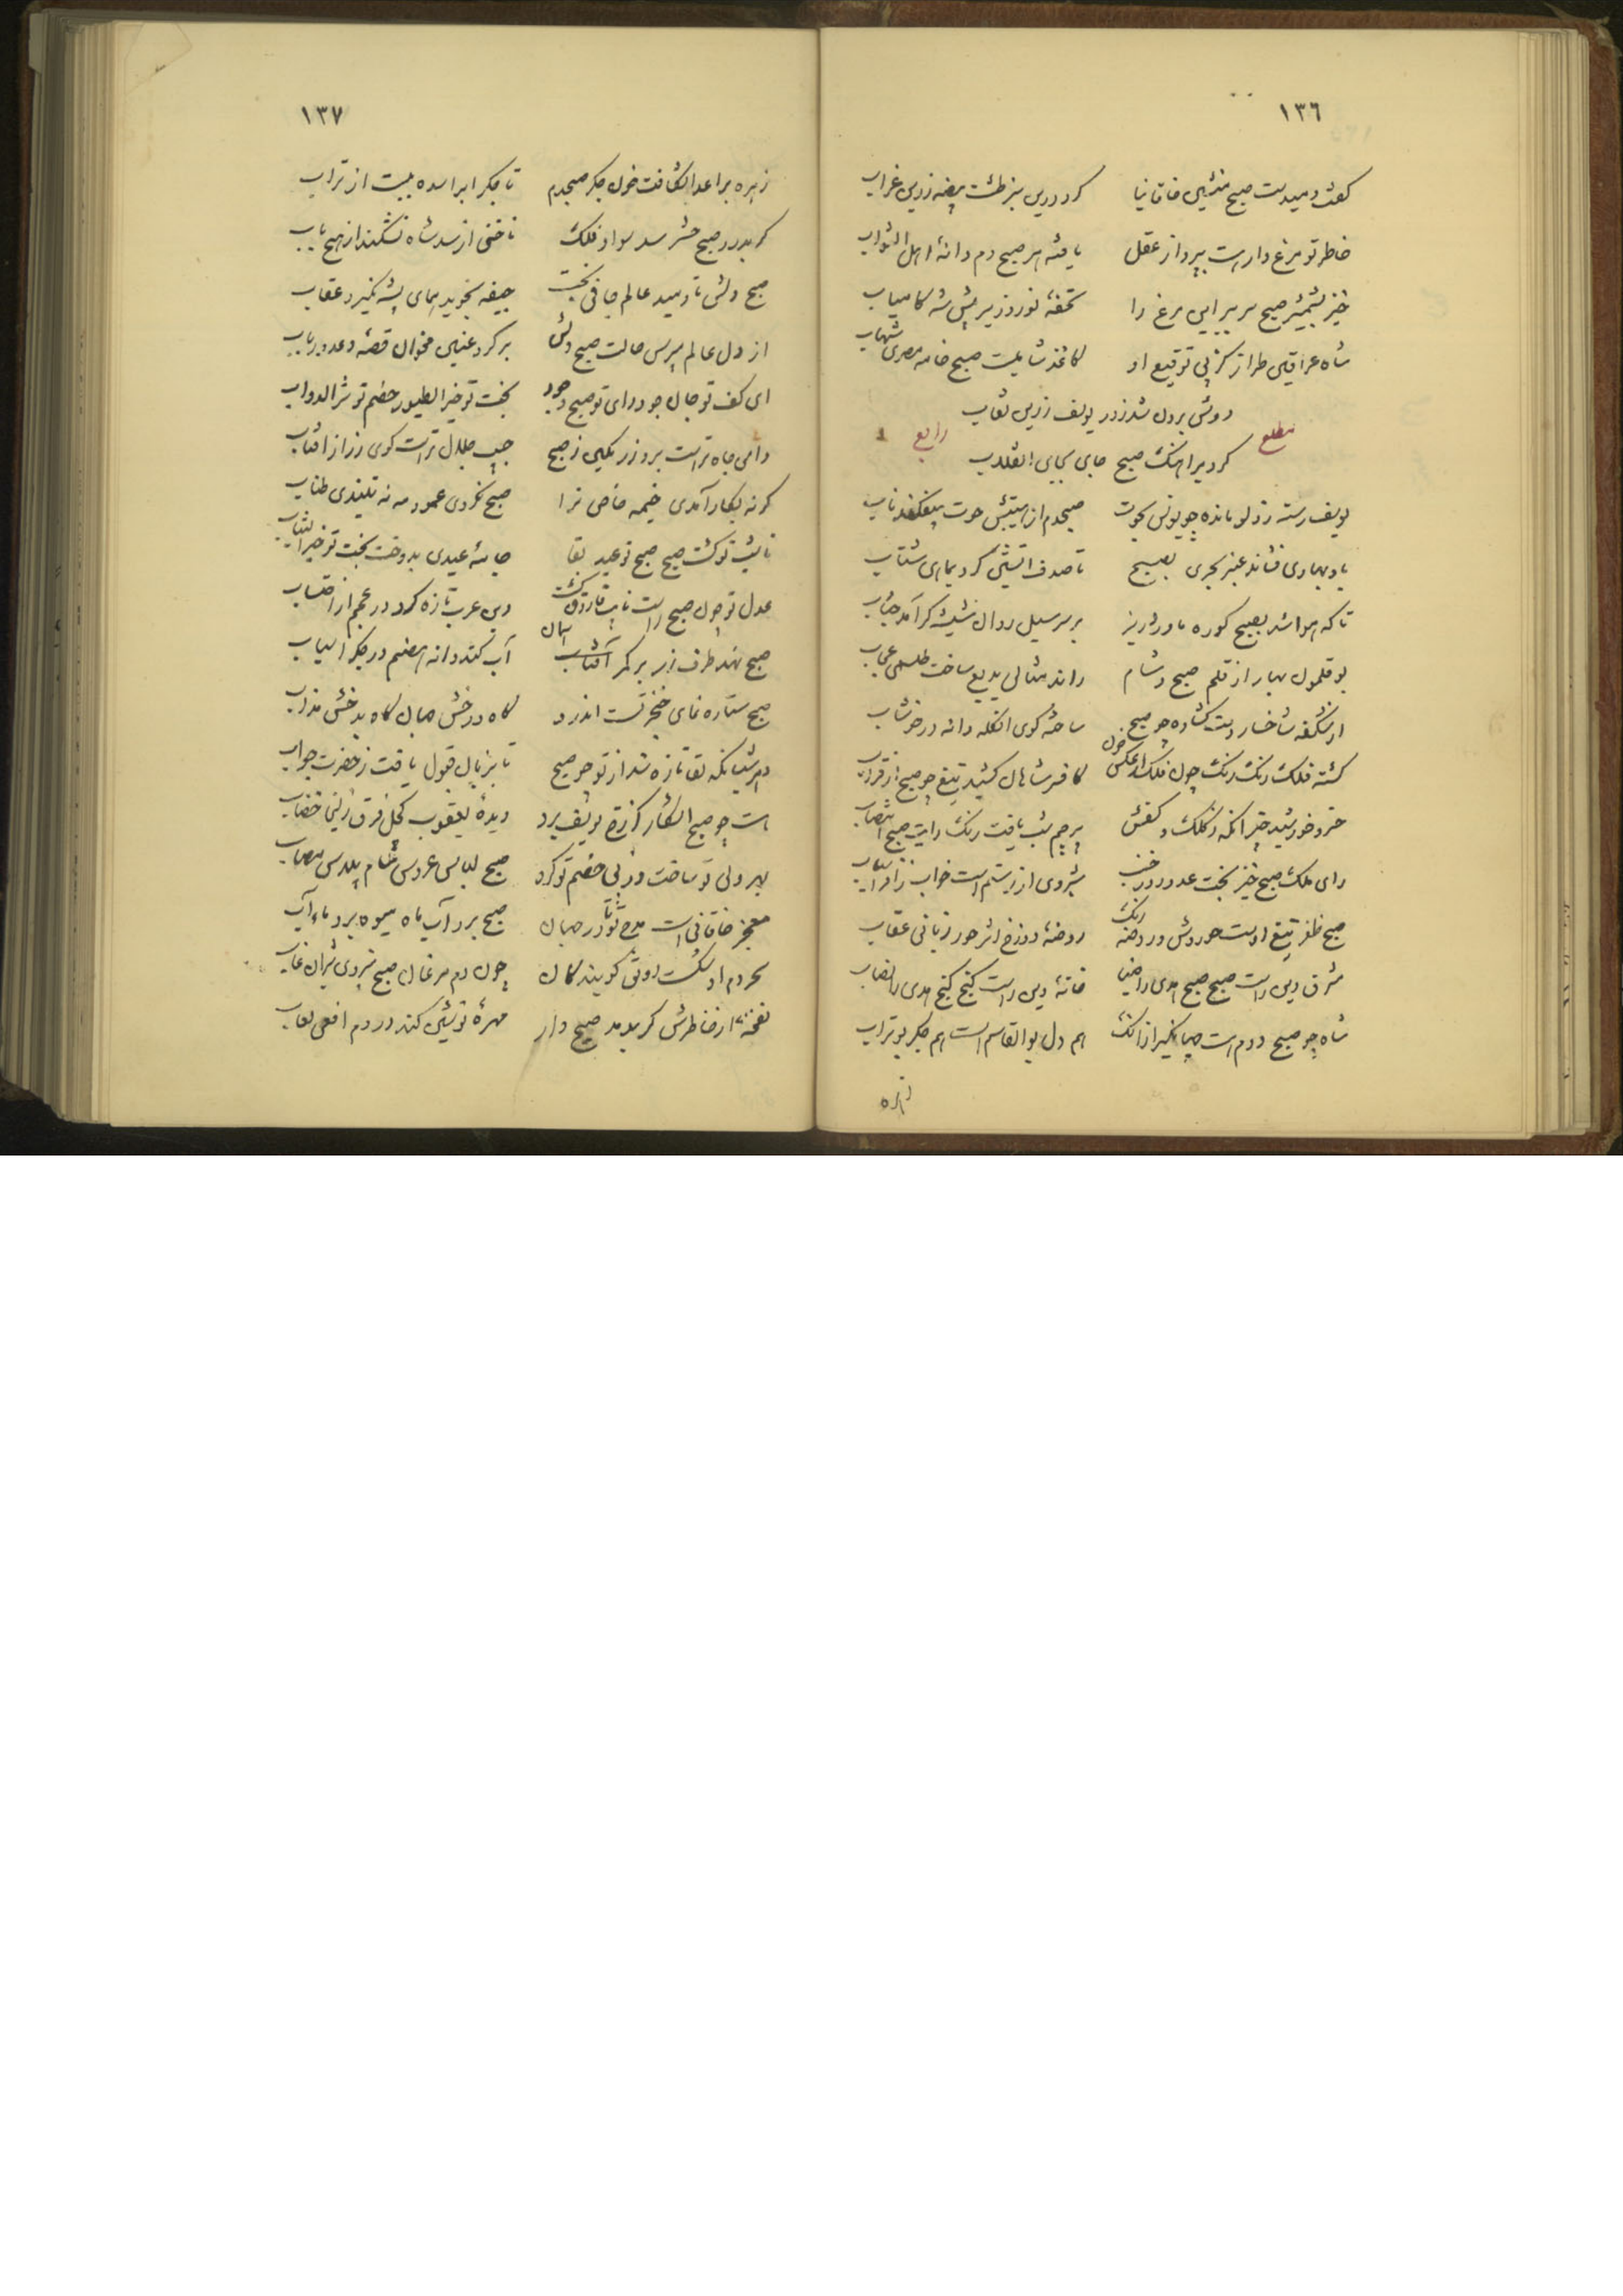 ١٣٦
گفت دمیدست صبح منشین خاقانیا کرد درین سبز طشت بیضه زرین غراب
خاطر تو مرغ وارست بپرواز عقل یافته هر صبح دم دانهٔ اهل الثواب
خیز بشمشیر صبح سر ببر این مرغ را تحفهٔ نوروز بر پیش شه کامیاب
شاه عراقین طراز کز پی توقیع او کاغذ شامیست صبح خامه مصری شهاب
مطلع رابع
دوش برون شد ز دلو یوسف زرین نقاب
کرد بر آهنگ صبح جای بجای انقلاب
یوسف رسته ز دلو مانده چو یونس بحوت صبحدم از هیبتش حوت بیفکند ناب
باد بهاری فشاند عنبر بحری بصبح تا صدف آتشین کرد بماهی شتاب
تا که هوا شد بصبح کوره ماورد ریز بر سر سیل روان شیشه گر آمد حباب
بوقلمون بهار از قلم صبح و شام راند مثالی بدیع ساخت طلسمی عجاب
از شکفه شاخسار جیب گشاده چو صبح ساخته گوی انگله دانه در خوشاب
گشته فلک رنگ رنگ چون فلک از عکس خون کافر شاهان کشید تیغ چو صبح از قراب
خسرو خورشید چتر آنکه ز کلک و کفش پرچم شب یافت رنگ رایت صبح انتصاب
رای ملک صبح خیز بخت عدو روز خسب شبروی از رستم است خواب ز افراسیاب
صبح ظفر تیغ اوست حوروش و روضه رنگ روضهٔ دوزخ اثر حور زبانی عقاب
مشرق دین راست صبح صبح هدی را ضیا خانهٔ دین راست گنج گنج هدی را نصاب
شاه چو صبح دوم است جهانگیر از آنک هم دل بوالقاسم است هم جگر بوتراب
زهره
١٣٧
زهره بر اعدا شکافت خون جگر صبحدم تا جگر
گر بدرد صبح حشر سد سواد فلک ناخنی از سد شاه نشکند از هیچ باب
صبح دلش تا دمید عالم جافی نجست جیفه نجوید همای پشه نگیرد عقاب
از دل عالم مپرس حالت صبح دلش بر کر عنین مخوان قصهٔ دعد و رباب
ای کف تو جان جود رای تو صبح وجود بخت تو خیر الطیور خصم تو شر الدواب
دامن جاه تراست بر و زر نگین ز صبح جیب جلال تراست گوی زر از آفتاب
گر نه بکار آمدی خیمه خاص ترا صبح نکردی عمود مه نه تنیدی طناب
نایب تو گشت صبح صبح تو عید بقا جامهٔ عیدی بدوخت بخت تو خیر الثیاب
عدل تو چون صبح راست نایب فاروق گشت دین عرب تازه کرد در عجم از احتساب
صبح نهد طرف زر بر کمر آسمان آب کند دانه هضم در جگر آسیاب
صبح ستاره نمای خنجر تست اندرو گاه درخش جهان گاه بدخش مذاب
دهر شبانگه لقا تازه شد از تو چو صبح تا بزبان قبول یافت ز حضرت جواب
هست چو صبح آشکار کز رخ یوسف برد دیدهٔ یعقوب کحل فرق زلیخا خضاب
بهر ولی تو ساخت وز پی خصم تو کرد صبح لباس عروس شام پلاس مصاب
معجز خاقانی است مدح تو در جهان صبح برد آب ماه میوه برد ماه آب
هر دم او گشت دوتی گویند کان چون دم مرغان صبح نیروی شیران غاب
نفخهٔ از خاطرش گر بدمد صبح وار مهرهٔ نوشین کند در دم افعی لعاب